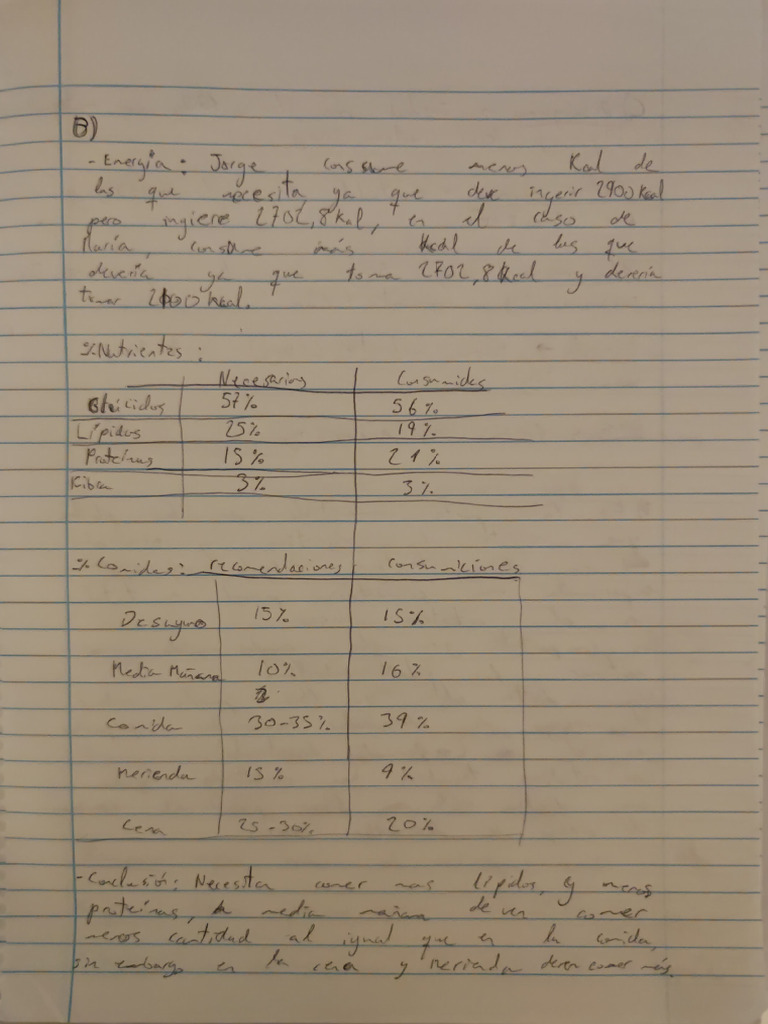 B)
- Energía: Jorge, consume menos Kcal de
las que necesita, ya que debe ingerir 2900 Kcal
pero ingiere 2702,8 Kcal, en el caso de
María, consume más Kcal de las que
devería ya que toma 2702,8 Kcal y devería
tomar 2100 Kcal.
% Nutrientes:
Necesarios Consumidos
Glúcidos 57% 56%
Lípidos 25% 19%
Proteínas 15% 21%
Fibra 3% 3%
% Comidas: recomendaciones consumiciones
Desayuno 15% 15%
Media Mañana 10% 16%
Comida 30-35% 39%
Merienda 15% 9%
Cena 25-30% 20%
- Conclusión: Necesitan comer mas lípidos, y menos
proteínas, a media mañana deven comer
menos cantidad al igual que en la comida,
sin embargo en la cena y merienda deven comer más.